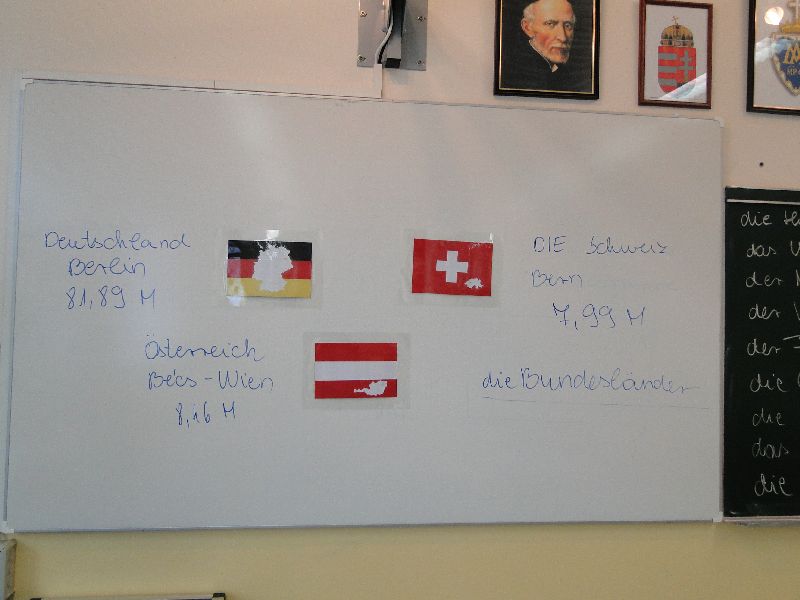 Deutschland
Berlin
81,89 M
DIE Schweiz
Bern
7,99 M
Österreich
Bécs-Wien
8,16 M
die Bundesländer
die
das
der
der
der
die
die
das
die